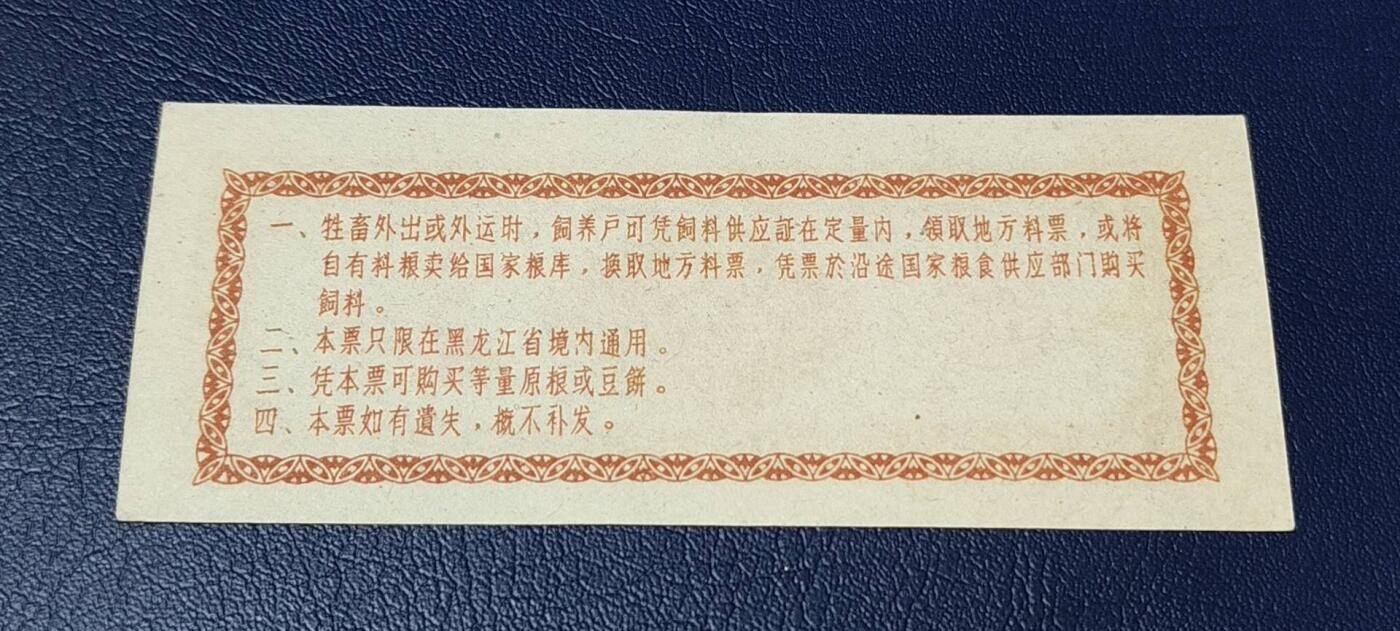 一、牲畜外出或外运时，飼养户可凭飼料供应証在定量内，領取地方料票，或将
自有料粮卖给国家粮库，換取地方料票，凭票於沿途国家粮食供应部门購买
飼料。
二、本票只限在黑龙江省境内通用。
三、凭本票可购买等量原粮或豆餅。
四、本票如有遺失，概不补发。